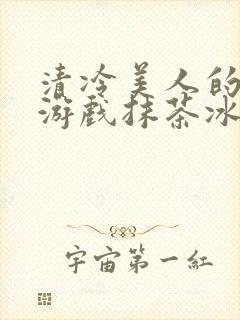 清冷美人的
游戏抹茶冰
宇宙第一紅